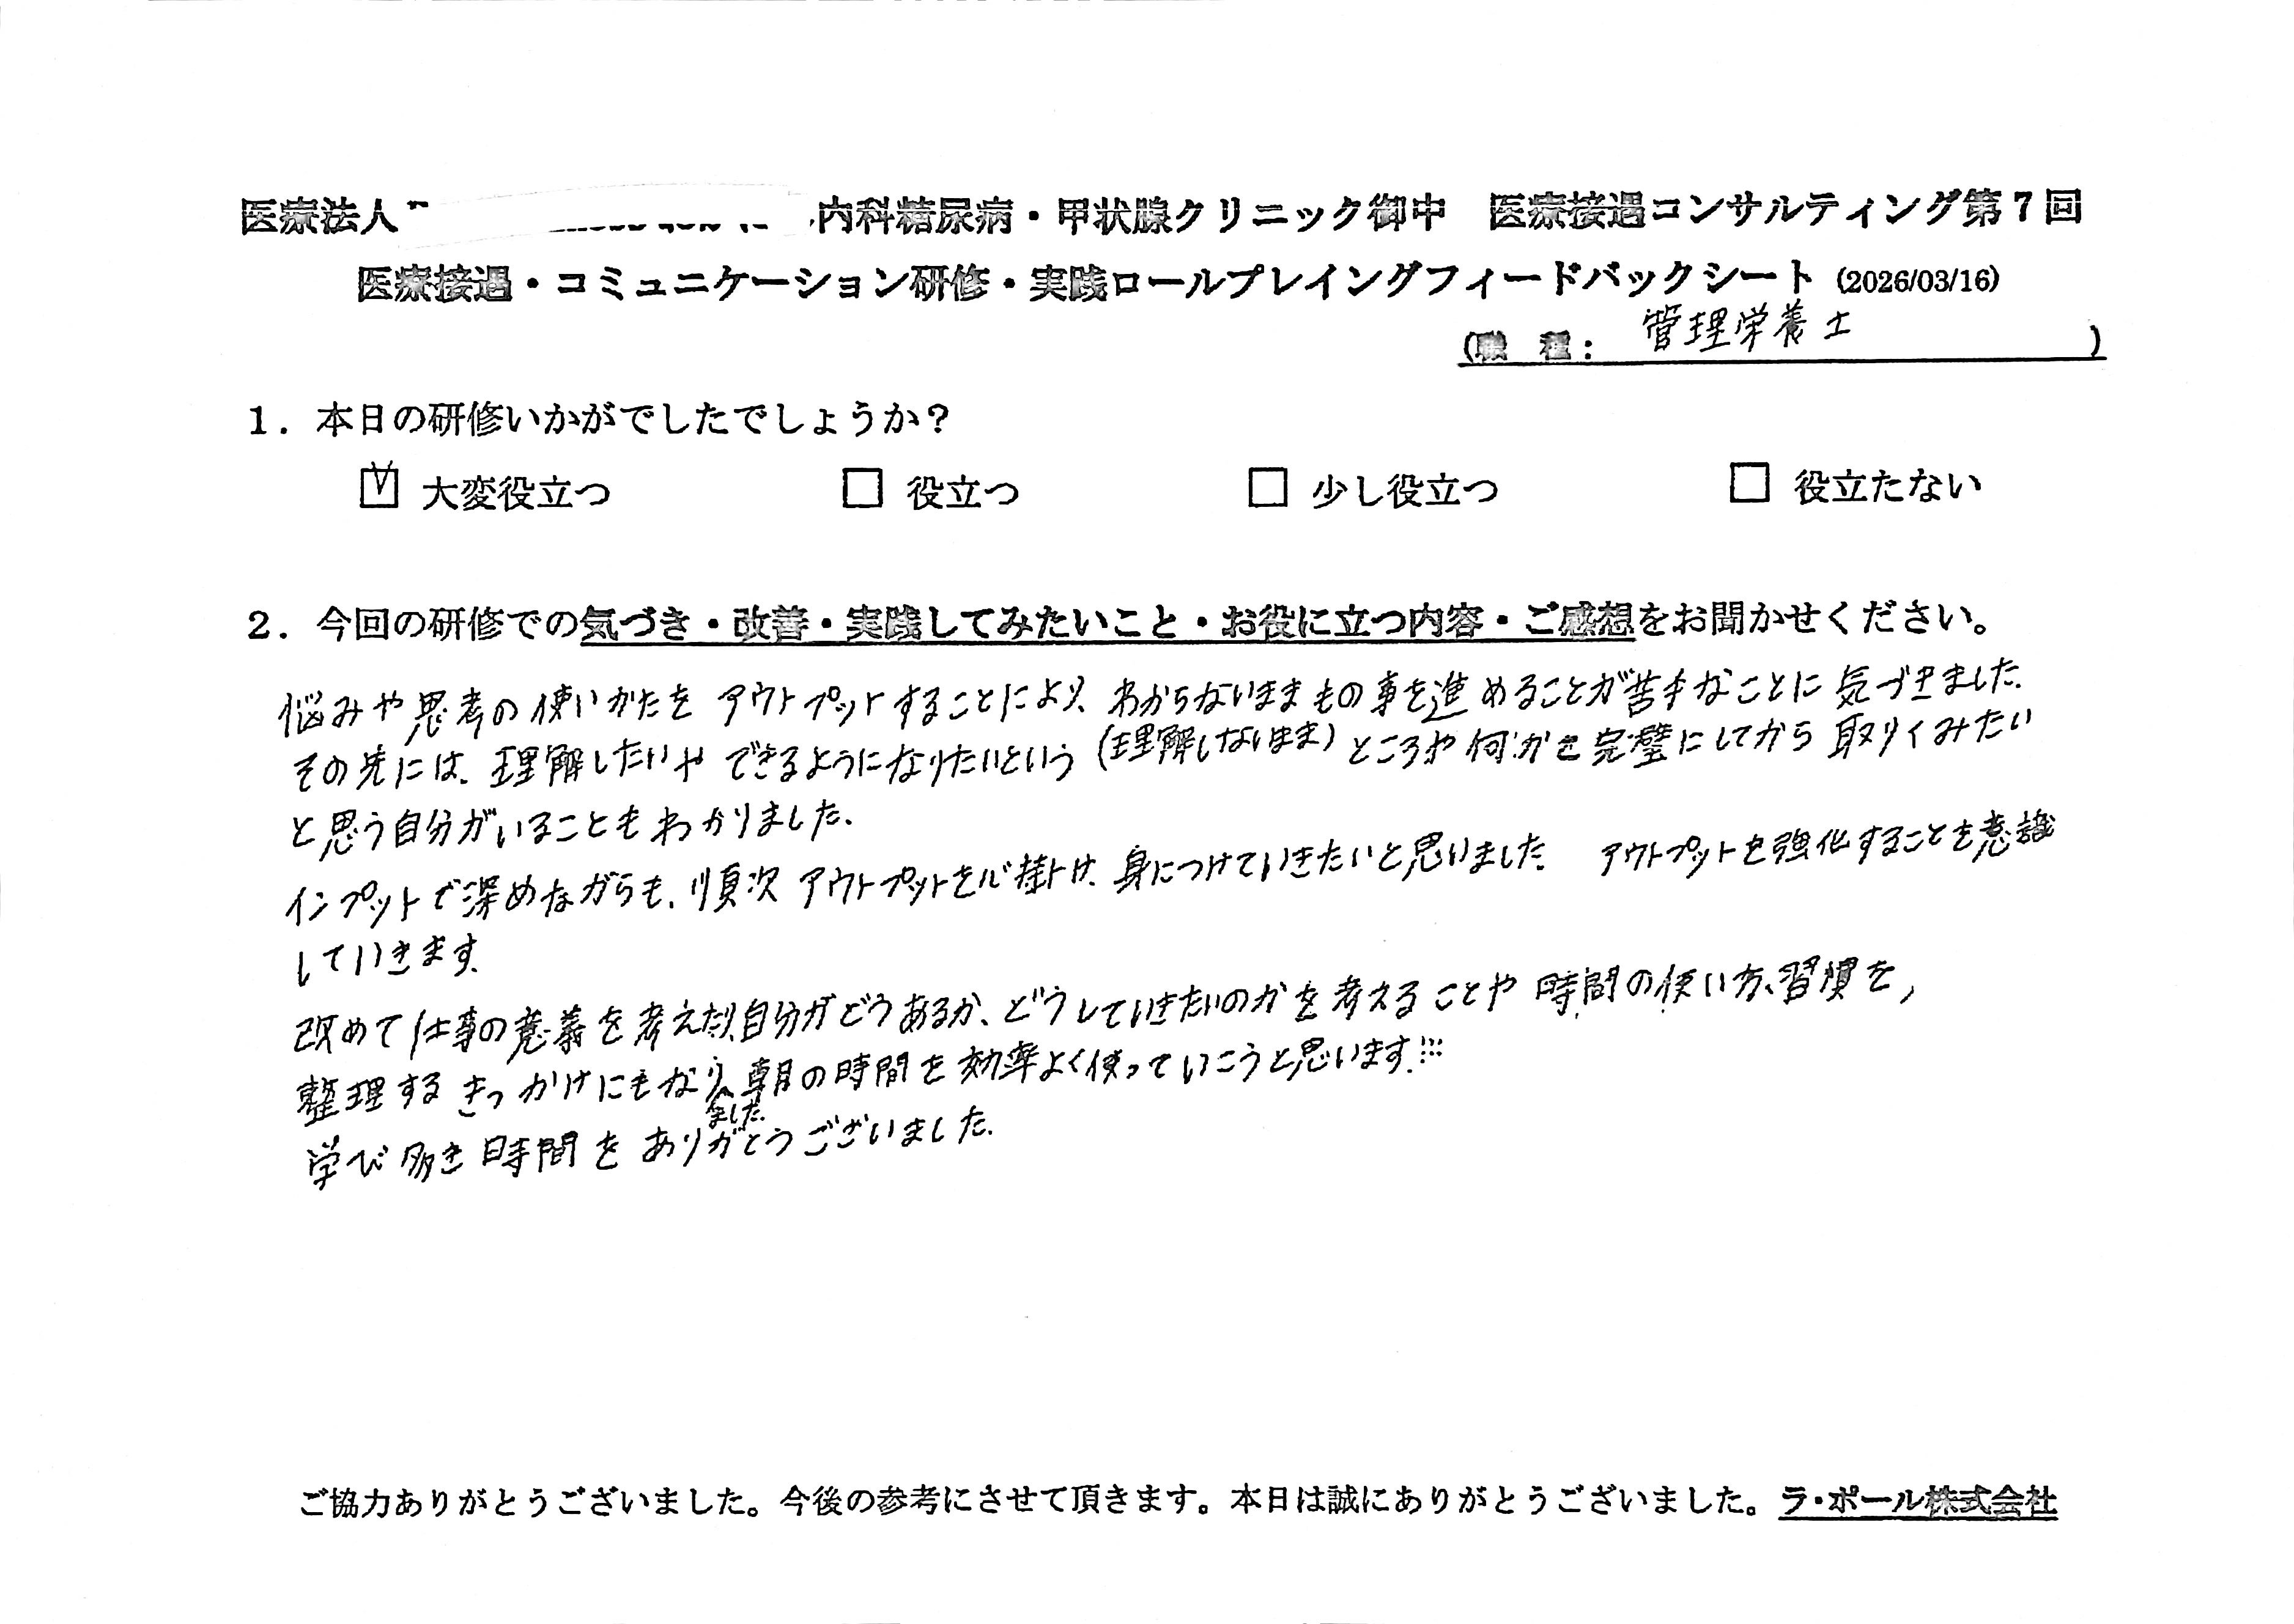 医療法人 内科糖尿病・甲状腺クリニック御中　医療接遇コンサルティング第７回
医療接遇・コミュニケーション研修・実践ロールプレイングフィードバックシート (2026/03/16)
(職　種：　管理栄養士　)
１．本日の研修いかがでしたでしょうか？
☑ 大変役立つ　□ 役立つ　□ 少し役立つ　□ 役立たない
２．今回の研修での気づき・改善・実践してみたいこと・お役に立つ内容・ご感想をお聞かせください。
悩みや思考の使いかたを アウトプットすることにより、わからないままもの事を進めることが苦手なことに気づきました。
その先には、理解したいや できるようになりたいという (理解しないまま) ところや何かを完璧にしてから 取りくみたい
と思う自分がいることもわかりました。
インプットで深めながらも、順次 アウトプットを心掛け、身につけていきたいと思いました。 アウトプットを強化することを意識
していきます。
改めて仕事の意義を考えたり、自分がどうあるか、どうしていきたいのかを考えることや 時間の使い方、習慣を、
整理する きっかけにもなりました。朝の時間を効率よく使っていこうと思います!!!
学び多き時間を ありがとうございました。
ご協力ありがとうございました。今後の参考にさせて頂きます。本日は誠にありがとうございました。ラ・ポール株式会社